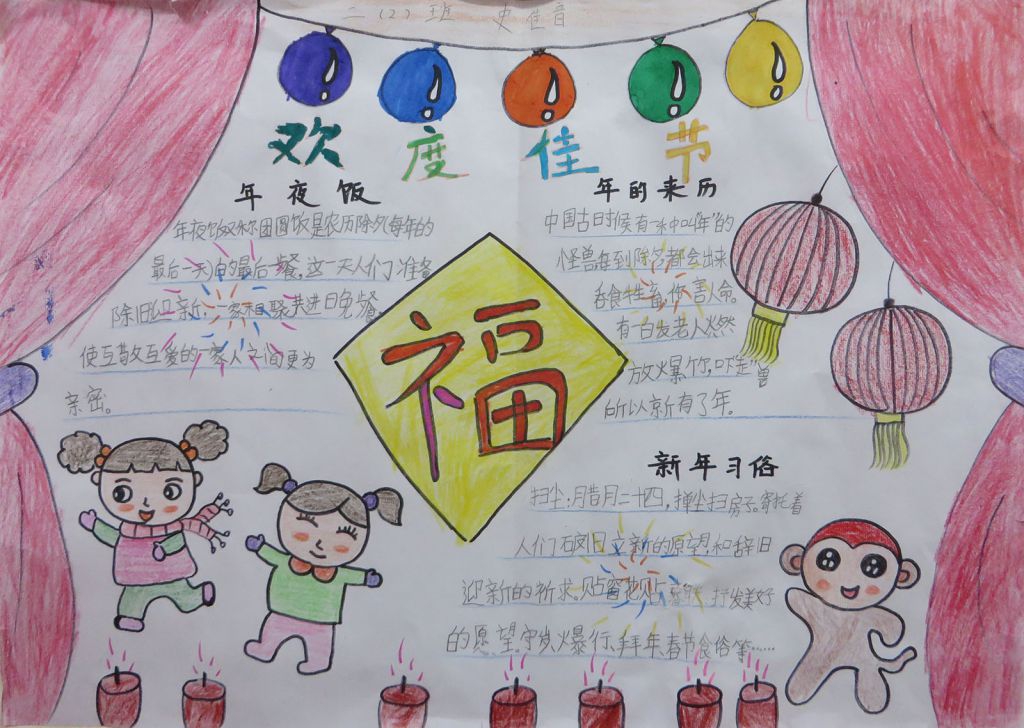 二（2）班 史佳音
欢度佳节
年夜饭
年夜饭又称团圆饭是农历除夕(每年的
最后一天)的最后一餐,这一天人们准备
除旧迎新,一家相聚,共进晚餐。
使互敬互爱的一家人之间更为
亲密。
福
年的来历
中国古时候有一种叫"年"的
怪兽每到除夕都会出来
吞食牲畜伤害人命。
有一白发老人火然
放火暴竹,吓走"兽
所以亲斤有了年。
新年习俗
扫尘:月昔月二十四,掸尘扫房子。寄托着
人们破旧立新的愿望,和辞旧
迎新的祈求。贴窗花贴 抒发美好
的愿望。守岁、火暴行、拜年、春节食俗等……